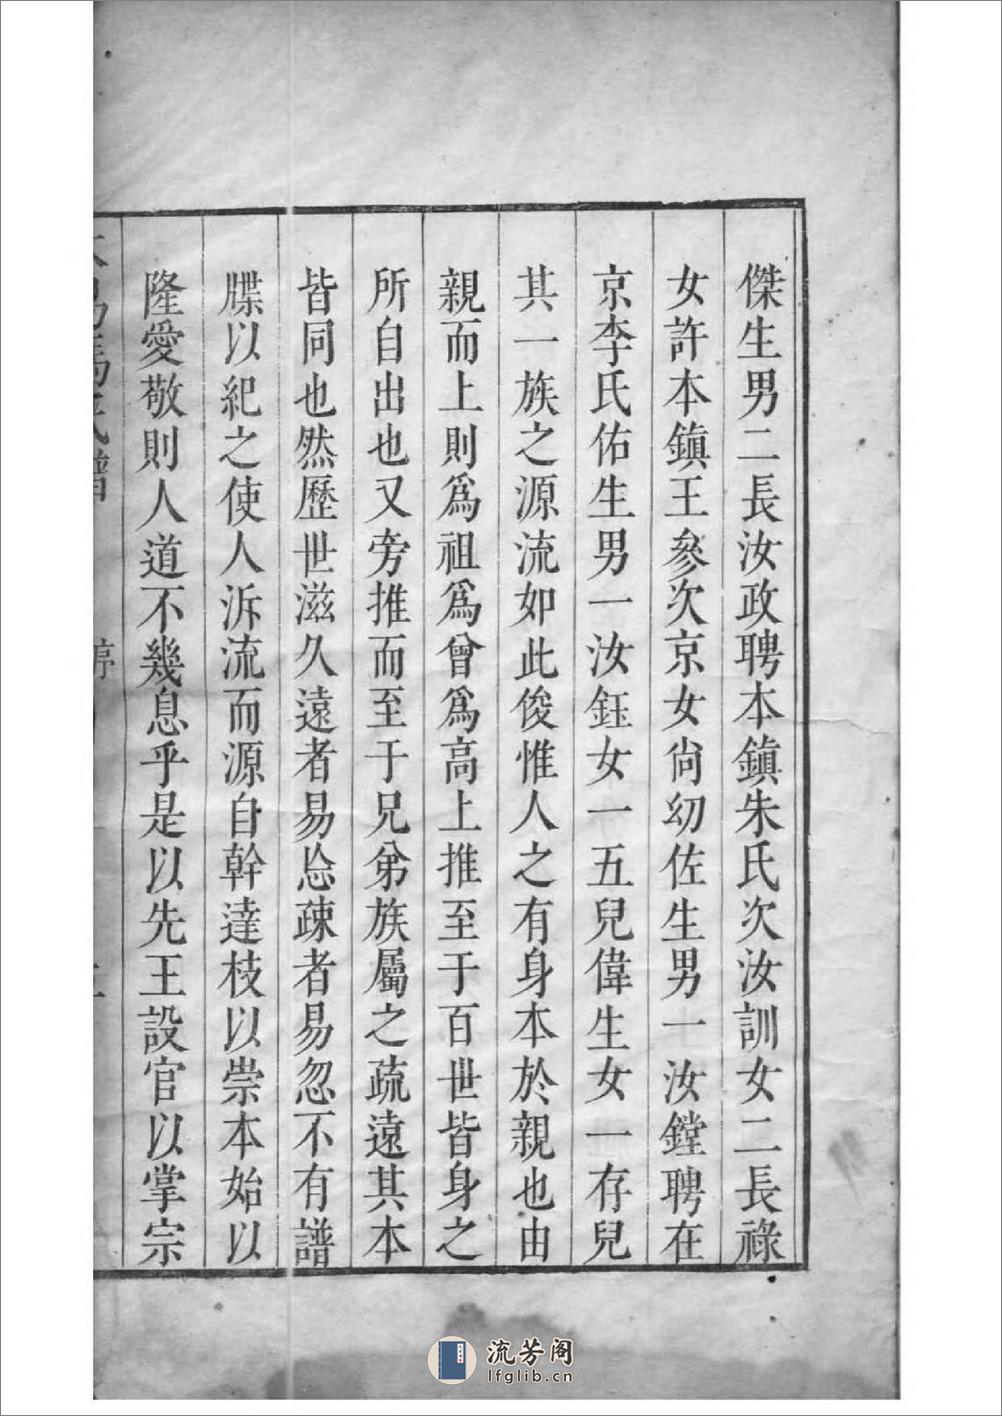 傑生男二長汝政聘本鎮朱氏次汝訓女二長祿
女許本鎮王參次京女尙幼佐生男一汝鏜聘在
京李氏佑生男一汝鈺女一五兒偉生女一存兒
其一族之源流如此俊惟人之有身本於親也由
親而上則爲祖爲曾爲高上推至于百世皆身之
所自出也又旁推而至于兄弟族屬之疏遠其本
皆同也然歷世滋久遠者易忘疎者易忽不有譜
牒以紀之使人泝流而源自幹達枝以崇本始以
隆愛敬則人道不幾息乎是以先王設官以掌宗
流芳阁
lfglib.cn